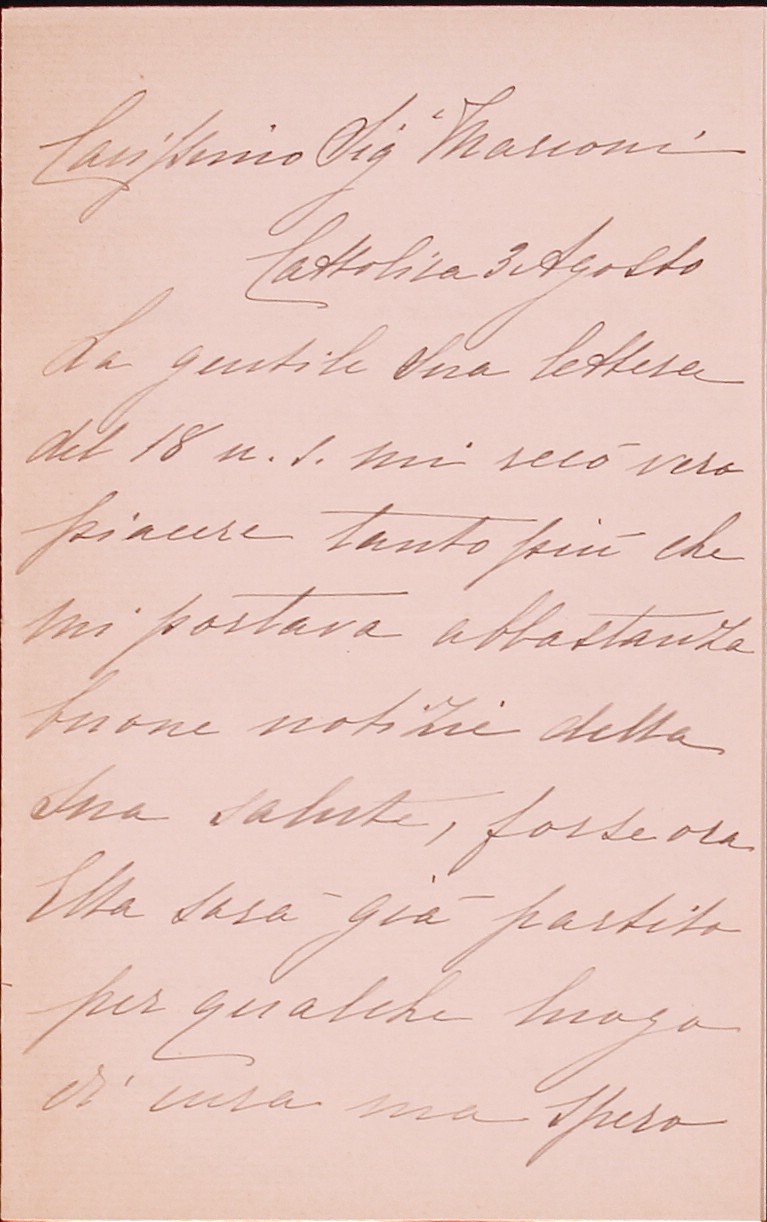 Carissimo Sig. Marconi
Cattolica 3 Agosto
La gentile Sua lettera
del 18 u. s. mi recò vero
piacere tanto più che
mi portava abbastanza
buone notizie della
Sua salute, forse ora
Ella sarà già partito
per qualche luogo
di cura ma spero